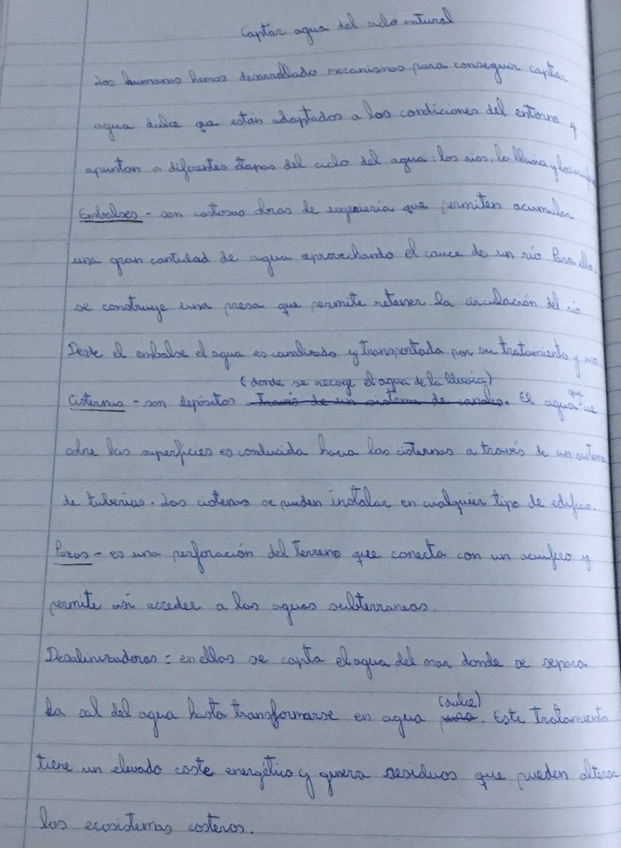 Captar agua del ciclo natural
Los humanos hemos desarrollado mecanismos para conseguir captar
agua dulce que están adaptados a los condiciones del entorno y
apuntan a diferentes etapas del ciclo del agua: los ríos, la lluvia y los
Embalses - son costosas obras de ingeniería que permiten acumular
una gran cantidad de agua aprovechando el cauce de un río. Para ello
se construye una presa que permite retener la circulación del río
Desde el embalse el agua es canalizado y transportada por su tratamiento y
(donde se recoge el agua de la lluvia)
Cisternas - son depósitos Través de un sistema de canales. El agua que cae
sobre las superficies es conducida hacia las cisternas a través de un sistema
de tuberías. Las cisternas se pueden instalar en cualquier tipo de edificio.
Pozos - es una perforación del Terreno que conecta con un acuífero y
permite así acceder a las aguas subterraneas.
Desalinizadoras: en ellas se capta el agua del mar donde se separa
la sal del agua hasta transformarse en agua (dulce). Este Tratamiento
tiene un elevado coste energético y genera residuos que pueden alterar
los ecosistemas costeros.